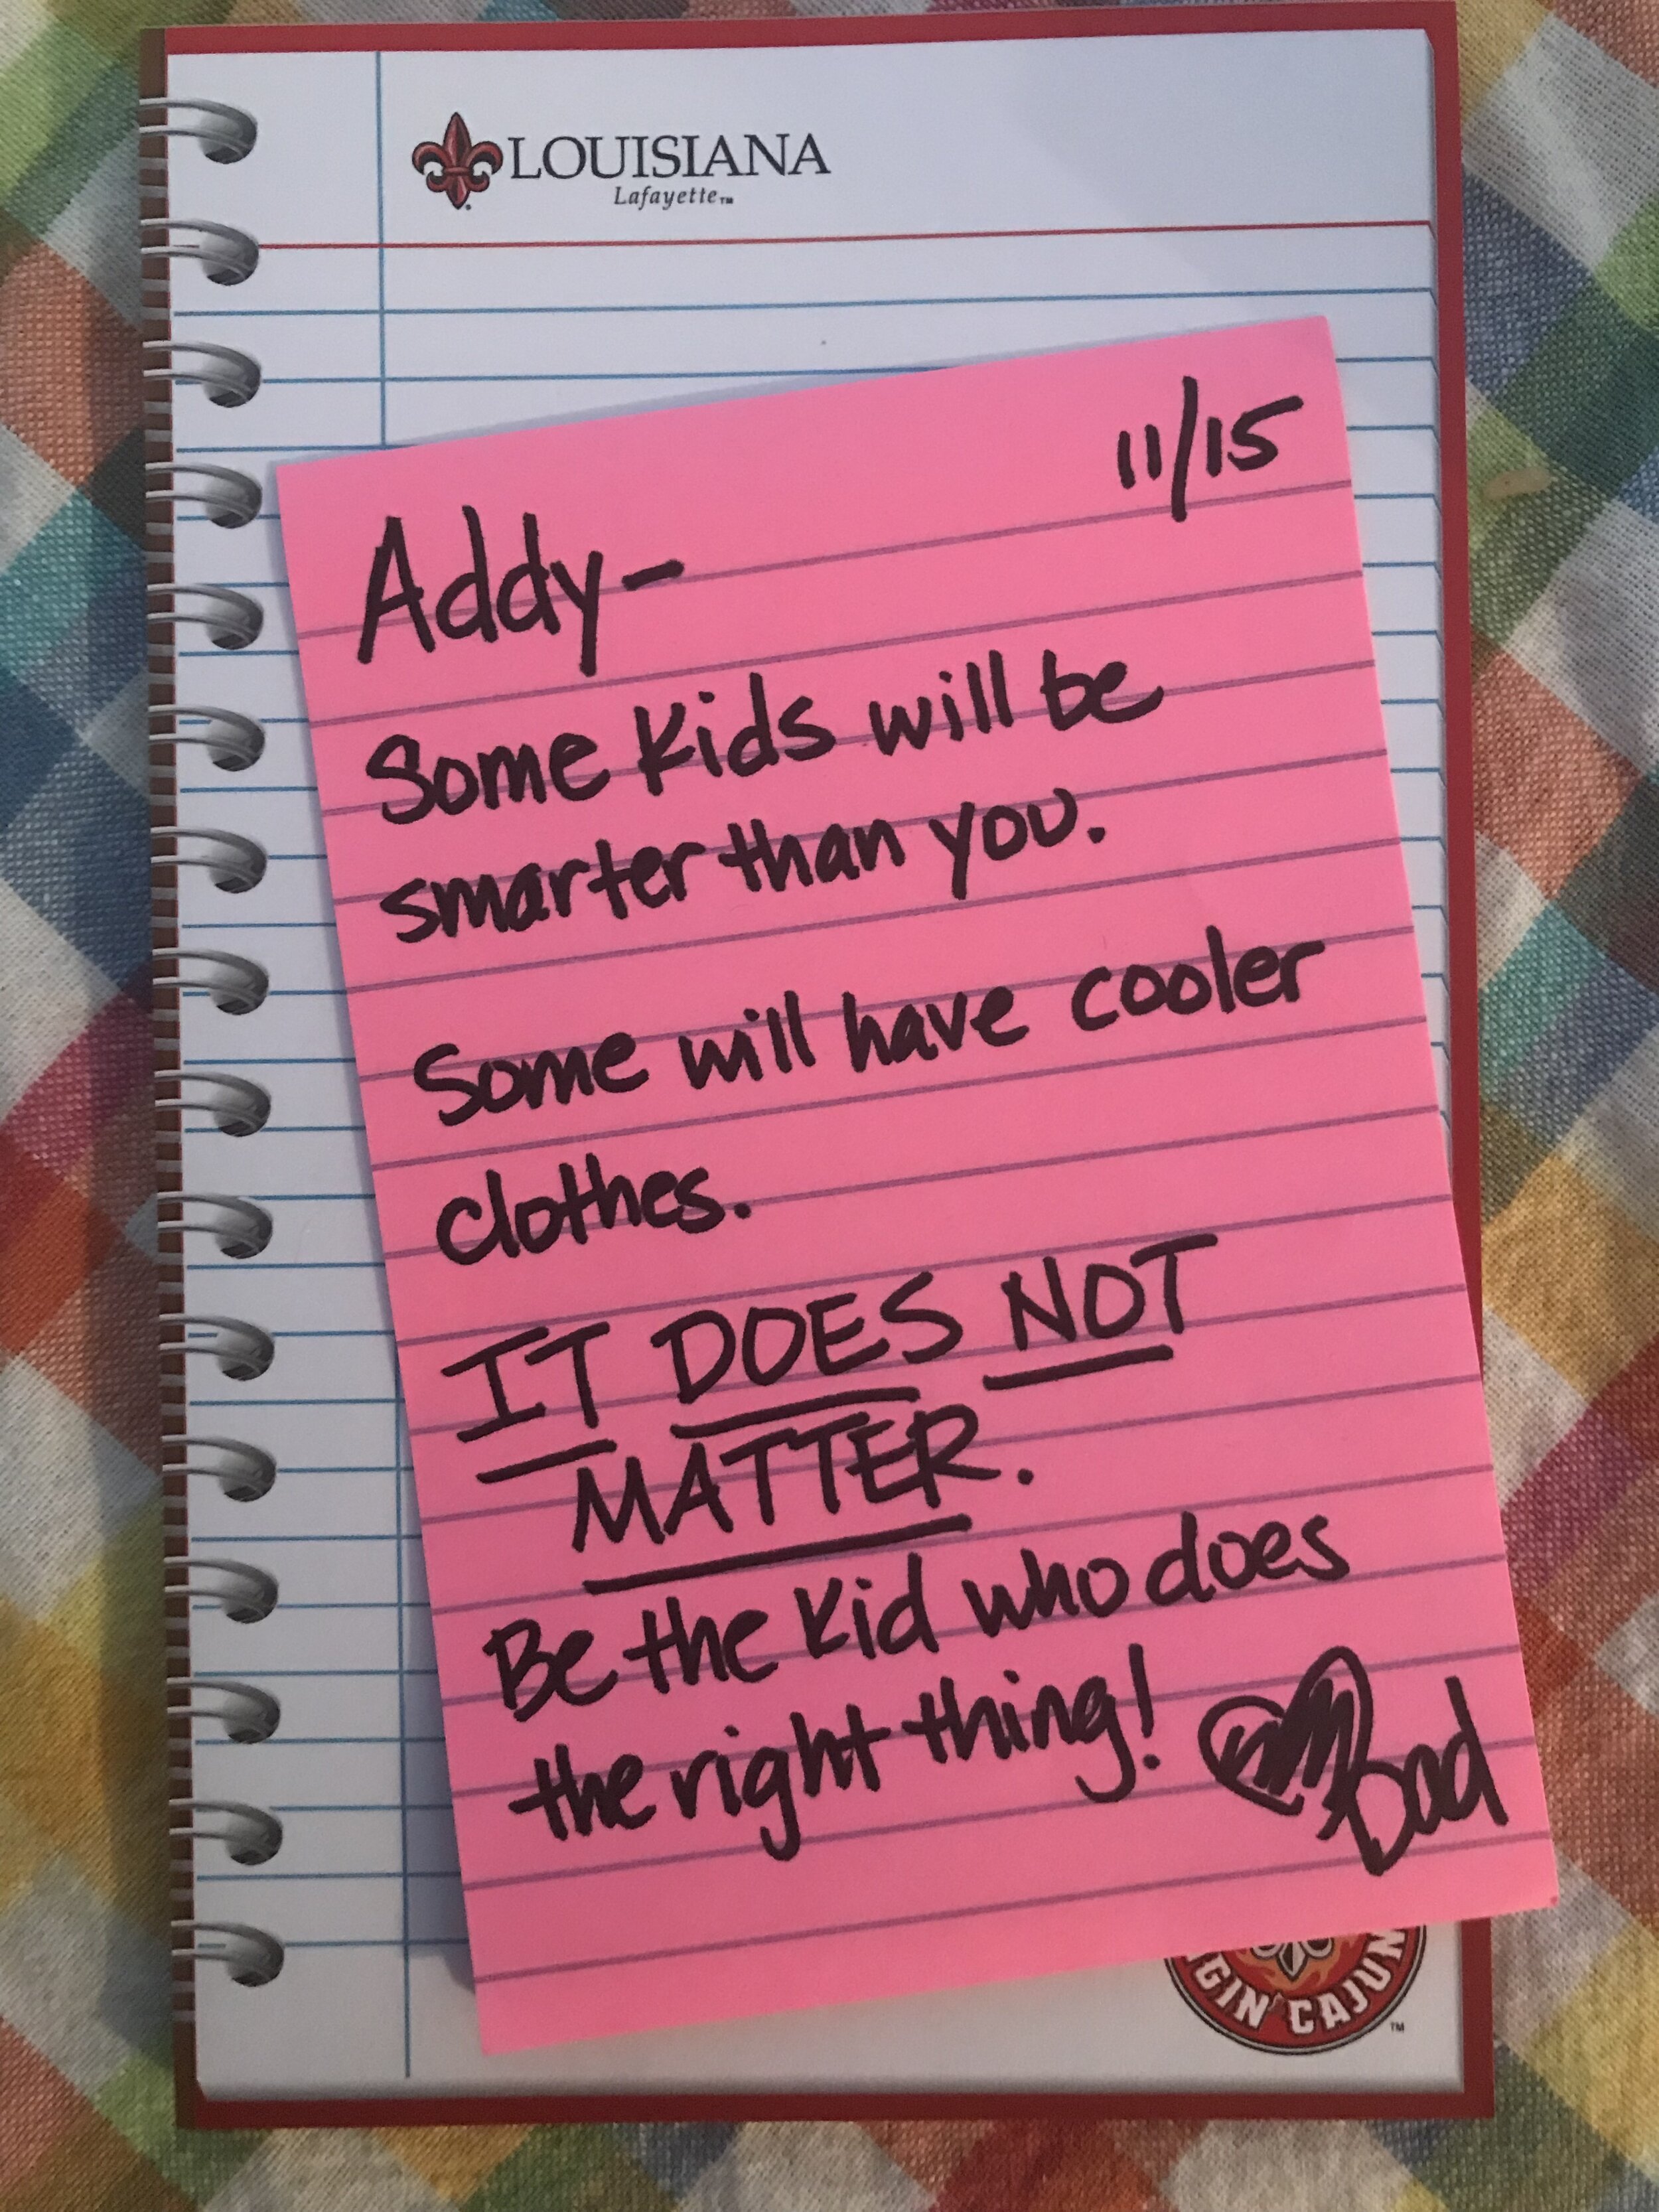 LOUISIANA
Lafayette™
11/15
Addy-
Some kids will be
smarter than you.
Some will have cooler
clothes.
IT DOES NOT
MATTER.
Be the kid who does
the right thing!
Dad
GIN' CAJUN
TM